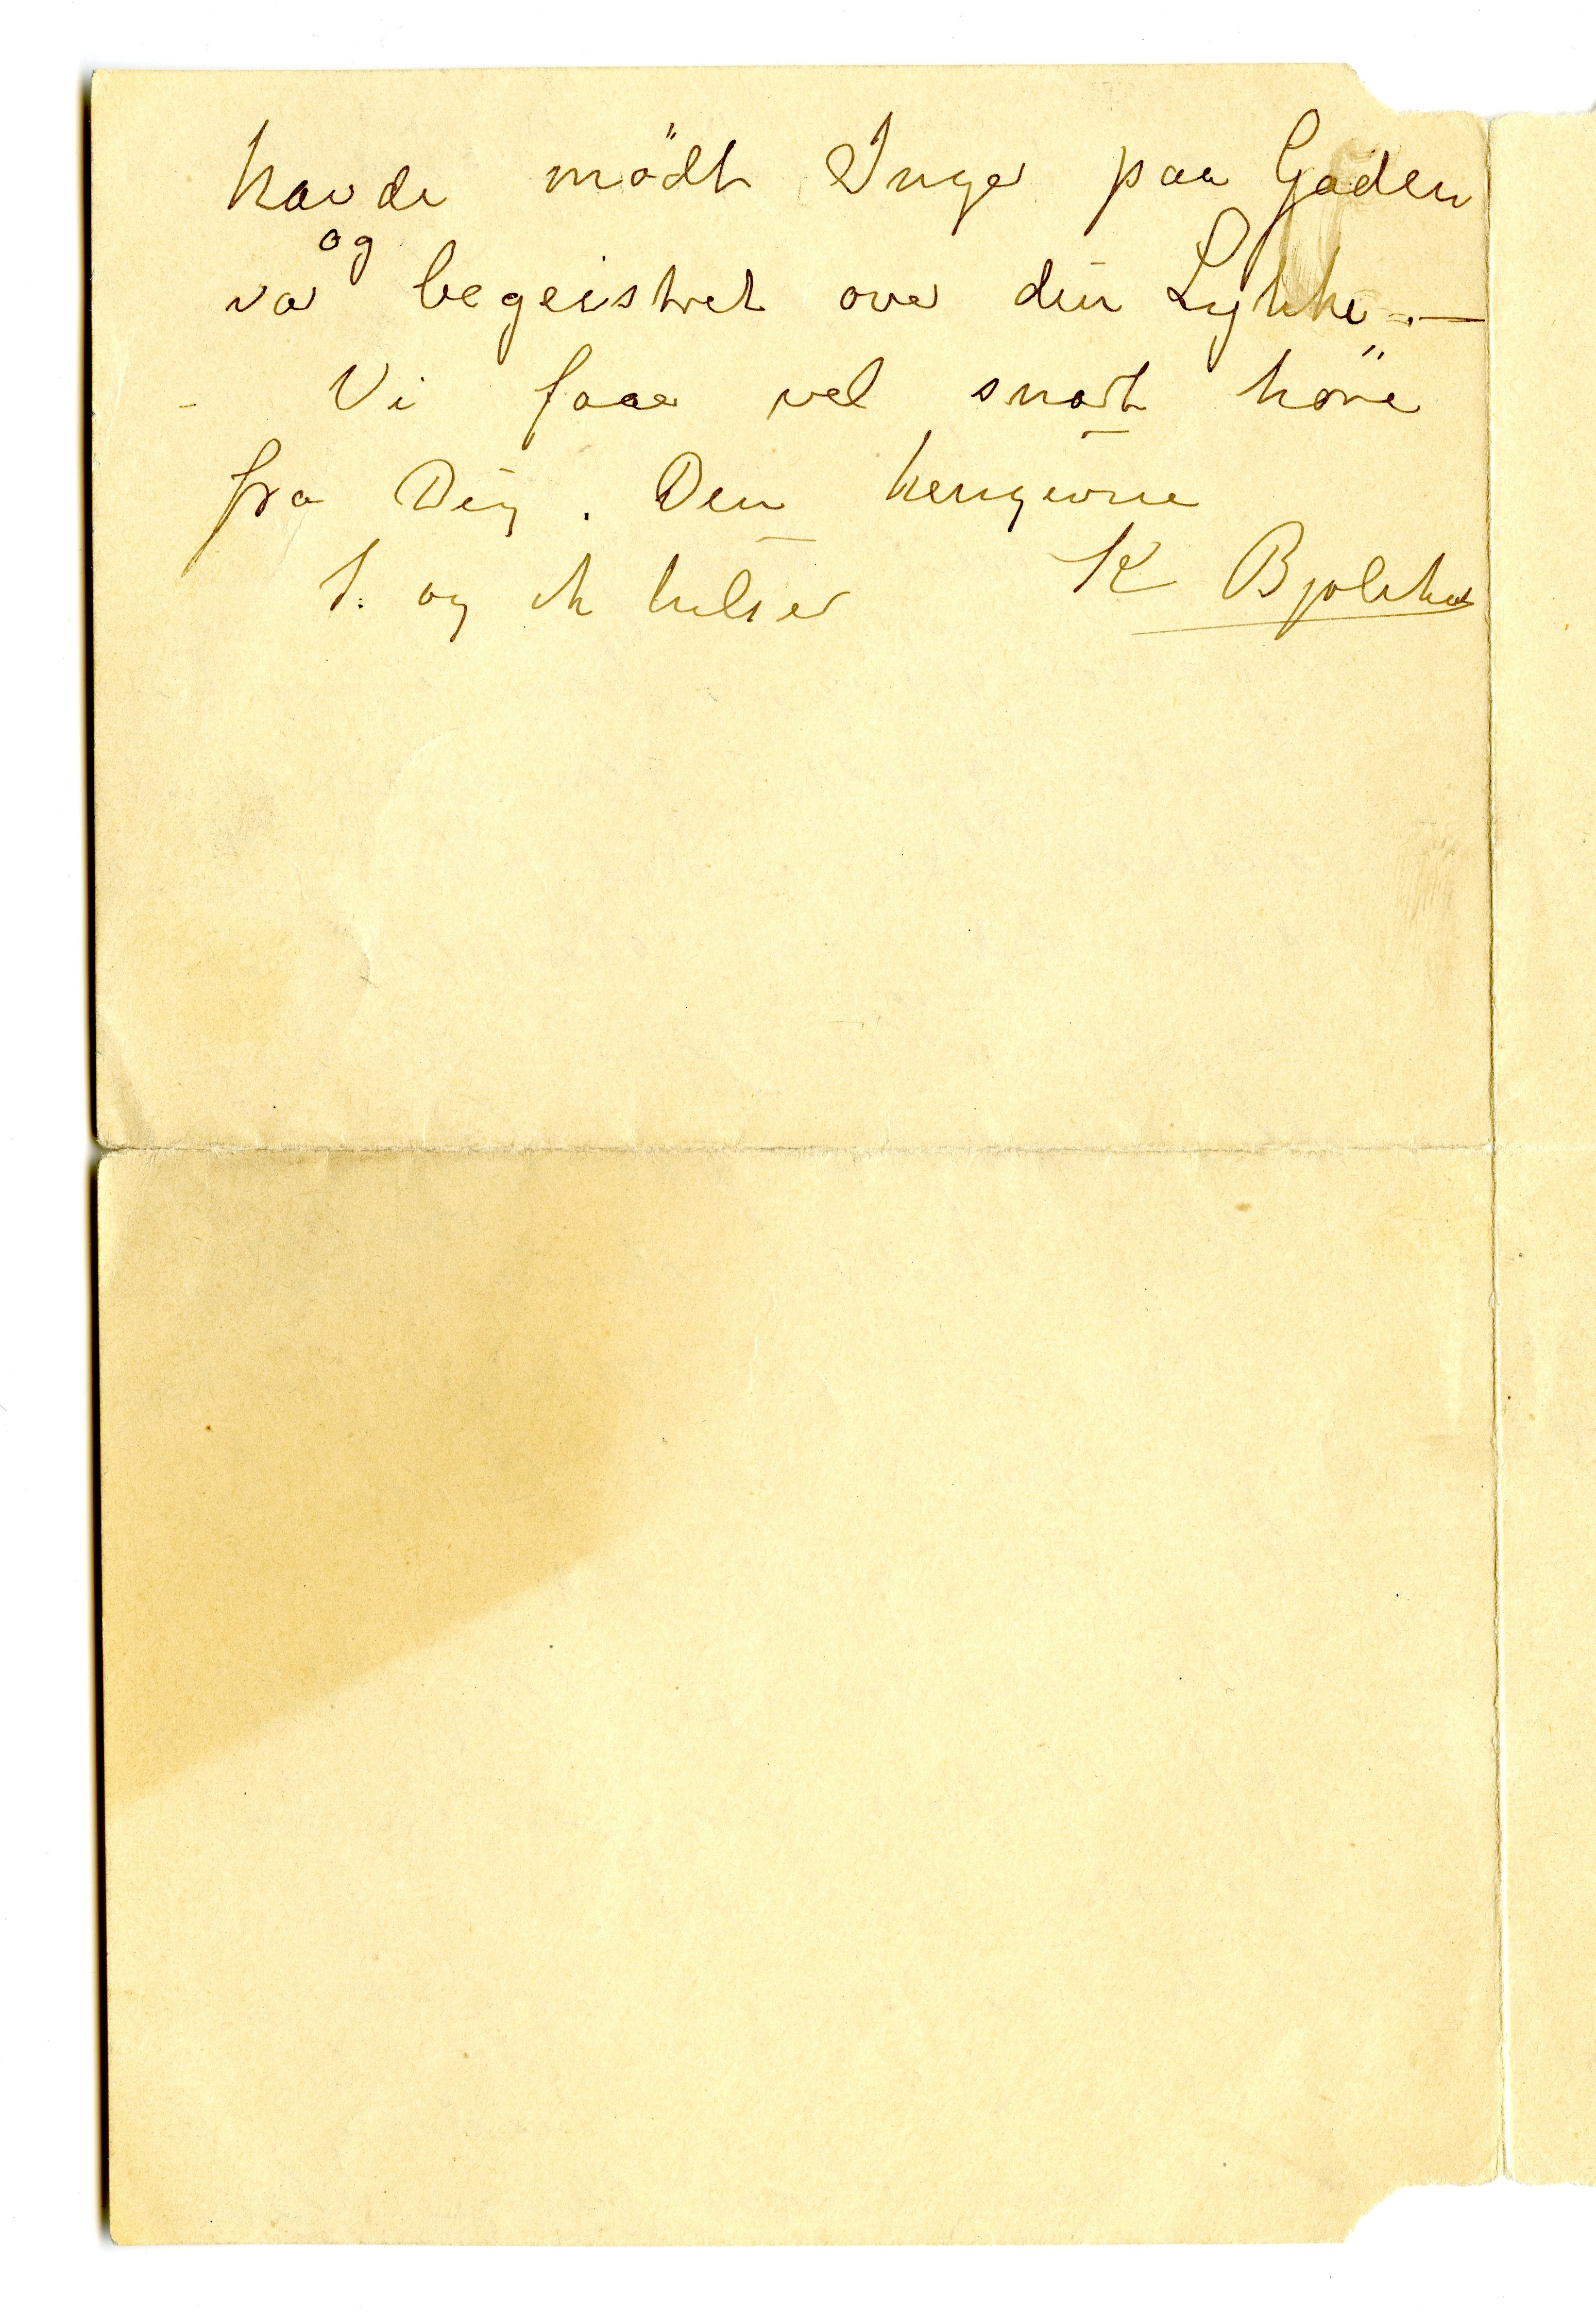 havde mödt Inger paa Gaden
og
var begeistret over din Lykke. —
Vi faaer vel snart höre
fra Dig. Den hengivne
og hilser K